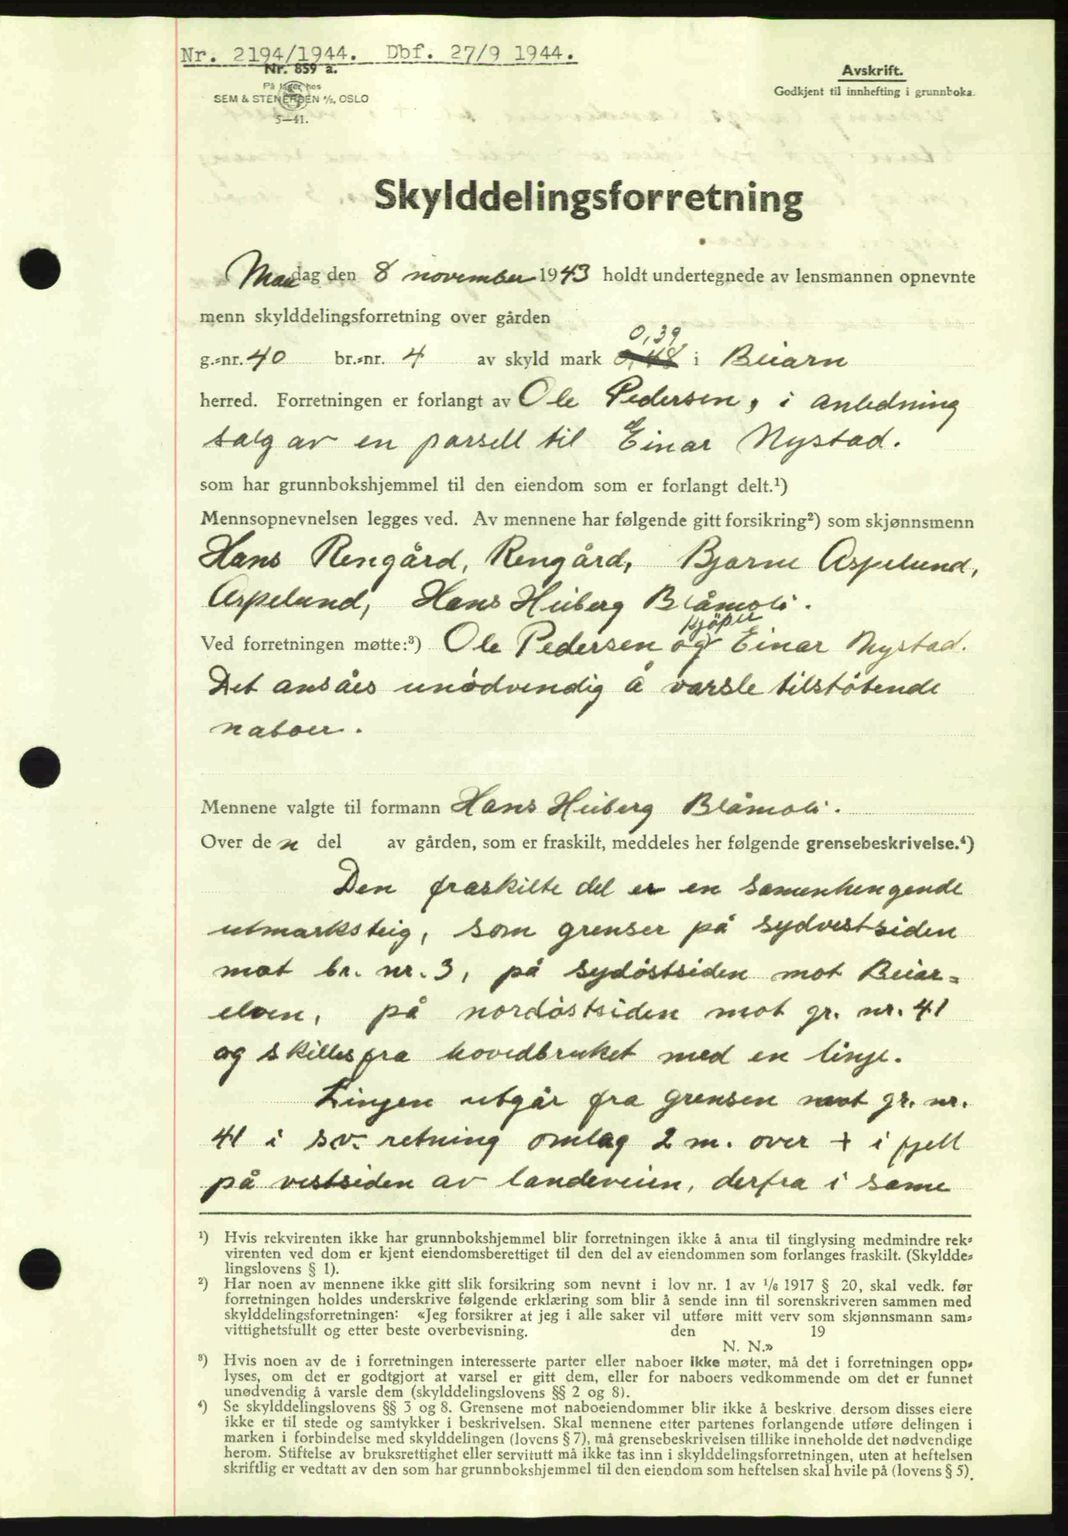 Nr. 2194/1944. Dbf. 27/9 1944.
Nr. 859 a.
På lager hos
SEM & STENERSEN A/S, OSLO
5—41.
Avskrift.
Godkjent til innhefting i grunnboka.
Skylddelingsforretning
Mandag den 8 november 1943 holdt undertegnede av lensmannen opnevnte
menn skylddelingsforretning over gården
0,39
g.-nr. 40 br.-nr. 4 av skyld mark 0,48 i Beiarn
herred. Forretningen er forlangt av Ole Pedersen, i anledning
salg av en parsell til Einar Nystad.
som har grunnbokshjemmel til den eiendom som er forlangt delt.¹)
Mennsopnevnelsen legges ved. Av mennene har følgende gitt forsikring²) som skjønnsmenn
Hans Rengård, Rengård, Bjarne Aspelund,
Aspelund, Hans Heiberg Blåmoli.
kjöper
Ved forretningen møtte:³) Ole Pedersen og Einar Nystad.
Det ansåes unödvendig å varsle tilstötende
naboer.
Mennene valgte til formann Hans Heiberg Blåmoli.
Over den del av gården, som er fraskilt, meddeles her følgende grensebeskrivelse.⁴)
Den fraskilte del er en samenhengende
utmarksteig, som grenser på sydvestsiden
mot br. nr. 3, på sydöstsiden mot Beiar-
elven, på nordöstsiden mot gr. nr. 41
og skilles fra hovedbruket med en linje.
Linjen utgår fra grensen mot gr. nr.
41 i sv. retning omlag 2 m. over + i fjell
på vestsiden av landeveien, derfra i same
¹) Hvis rekvirenten ikke har grunnbokshjemmel blir forretningen ikke å anta til tinglysing medmindre rek-
virenten ved dom er kjent eiendomsberettiget til den del av eiendommen som forlanges fraskilt. (Skyldde-
lingslovens § 1).
²) Har noen av mennene ikke gitt slik forsikring som nevnt i lov nr. 1 av 1/6 1917 § 20, skal vedk. før
forretningen holdes underskrive følgende erklæring som blir å sende inn til sorenskriveren sammen med
skylddelingsforretningen: «Jeg forsikrer at jeg i alle saker vil utføre mitt verv som skjønnsmann sam-
vittighetsfullt og etter beste overbevisning. den 19
N. N.»
³) Hvis noen av de i forretningen interesserte parter eller naboer ikke møter, må det i forretningen opp-
lyses, om det er godtgjort at varsel er gitt dem, eller for naboers vedkommende om det er funnet
unødvendig å varsle dem (skylddelingslovens §§ 2 og 8).
⁴) Se skylddelingslovens §§ 3 og 8. Grensene mot naboeiendommer blir ikke å beskrive dersom disses eiere
ikke er til stede og samtykker i beskrivelsen. Skal mennene etter partenes forlangende utføre delingen i
marken i forbindelse med skylddelingen (lovens § 7), må grensebeskrivelsen tillike inneholde det nødvendige
herom. Stiftelse av bruksrettighet eller servitutt må ikke tas inn i skylddelingsforretningen, uten at heftelsen
skriftlig er vedtatt av den som har grunnbokshjemmel til den eiendom som heftelsen skal hvile på (lovens § 5).